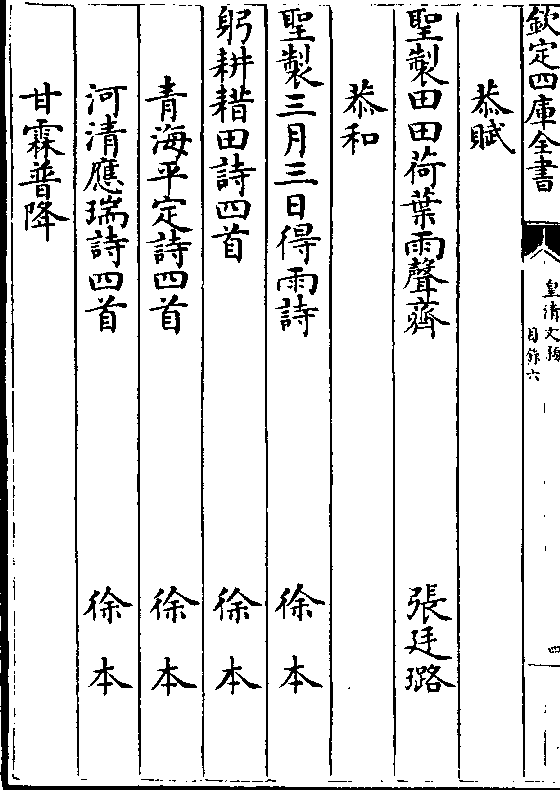 欽定四庫全書
皇清文頴
目錄六
四
恭賦
聖製田田荷葉雨聲薺
張廷璐
恭和
聖製三月三日得雨詩
徐本
躬耕耤田詩四首
徐本
青海平定詩四首
徐本
河清應瑞詩四首
徐本
甘霖普降